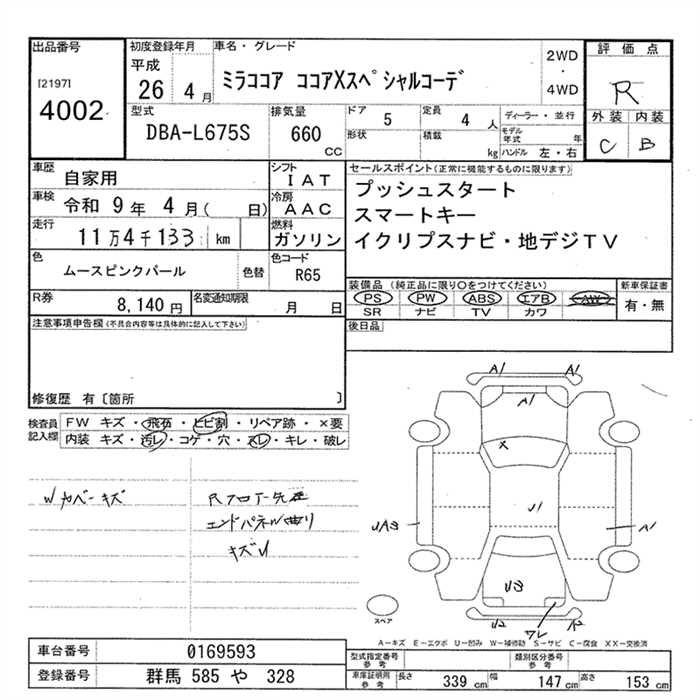 出品番号
[2197]
4002
初度登録年月
平成
26 4月
車名・グレード
ミラココア ココアXスペシャルコーデ
2WD
・
4WD
評価点
R
外装 内装
C B
型式
DBA-L675S
排気量
660
CC
ドア 5
形状
定員 4 人
積載 kg
ディーラー・並行
モデル年式 年
ハンドル 左・右
車歴
自家用
車検
令和 9年 4月( 日)
走行
11万4千133 km
シフト
IAT
冷房
AAC
燃料
ガソリン
セールスポイント(正常に機能するものに限ります)
プッシュスタート
スマートキー
イクリプスナビ・地デジTV
色
ムースピンクパール
色替
色コード
R65
R券
8,140円
名変通知期限
月 日
装備品 (純正品に限り〇をつけてください)
PS PW ABS エアB AW
SR ナビ TV カワ
新車保証書
有・無
後日品
注意事項申告欄(不具合内容等は具体的に記入して下さい)
修復歴 有〔箇所 〕
検査員記入欄
FW キズ・飛石・ヒビ割・リペア跡・×要
内装 キズ・汚レ・コゲ・穴・スレ・キレ・破レ
Wカバーキズ
Rフロア先迄
エンドパネル曲り
キズU
A1 A1
A1
X
U1
UA3
A1
U3
U2
ワレ
A2
スペア
A-キズ E-エクボ U-凹み W-補修跡 S-サビ C-腐食 XX-交換済
車台番号
0169593
登録番号
群馬 585 や 328
型式指定番号
参考
類別区分番号
参考
車庫証明用
参考
長さ 339 cm 幅 147 cm 高さ 153 cm